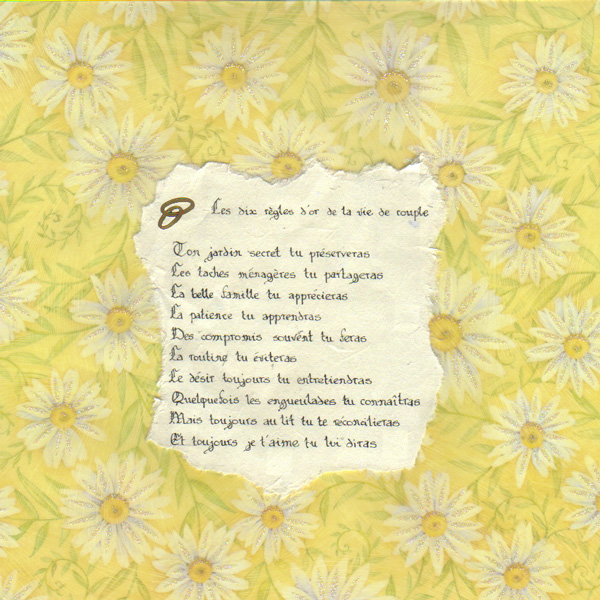 Les dix règles d'or de la vie de couple
Ton jardin secret tu préserveras
Les taches ménagères tu partageras
La belle famille tu apprécieras
La patience tu apprendras
Des compromis souvent tu feras
La routine tu éviteras
Le désir toujours tu entretiendras
Quelquefois les engueulades tu connaîtras
Mais toujours au lit tu te réconcilieras
Et toujours je t'aime tu lui diras